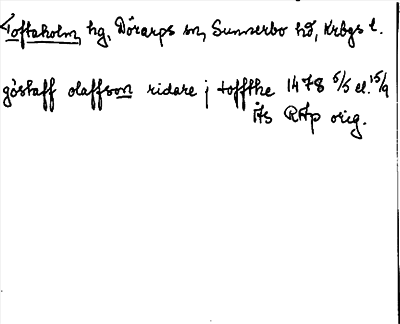 Toftaholm, hg, Dörarps sn, Sunnerbo hd, Krbgs l.
göstaff olaffson ridare j toffthe 1478 5/5 el. 15/9
Äs RAp orig.